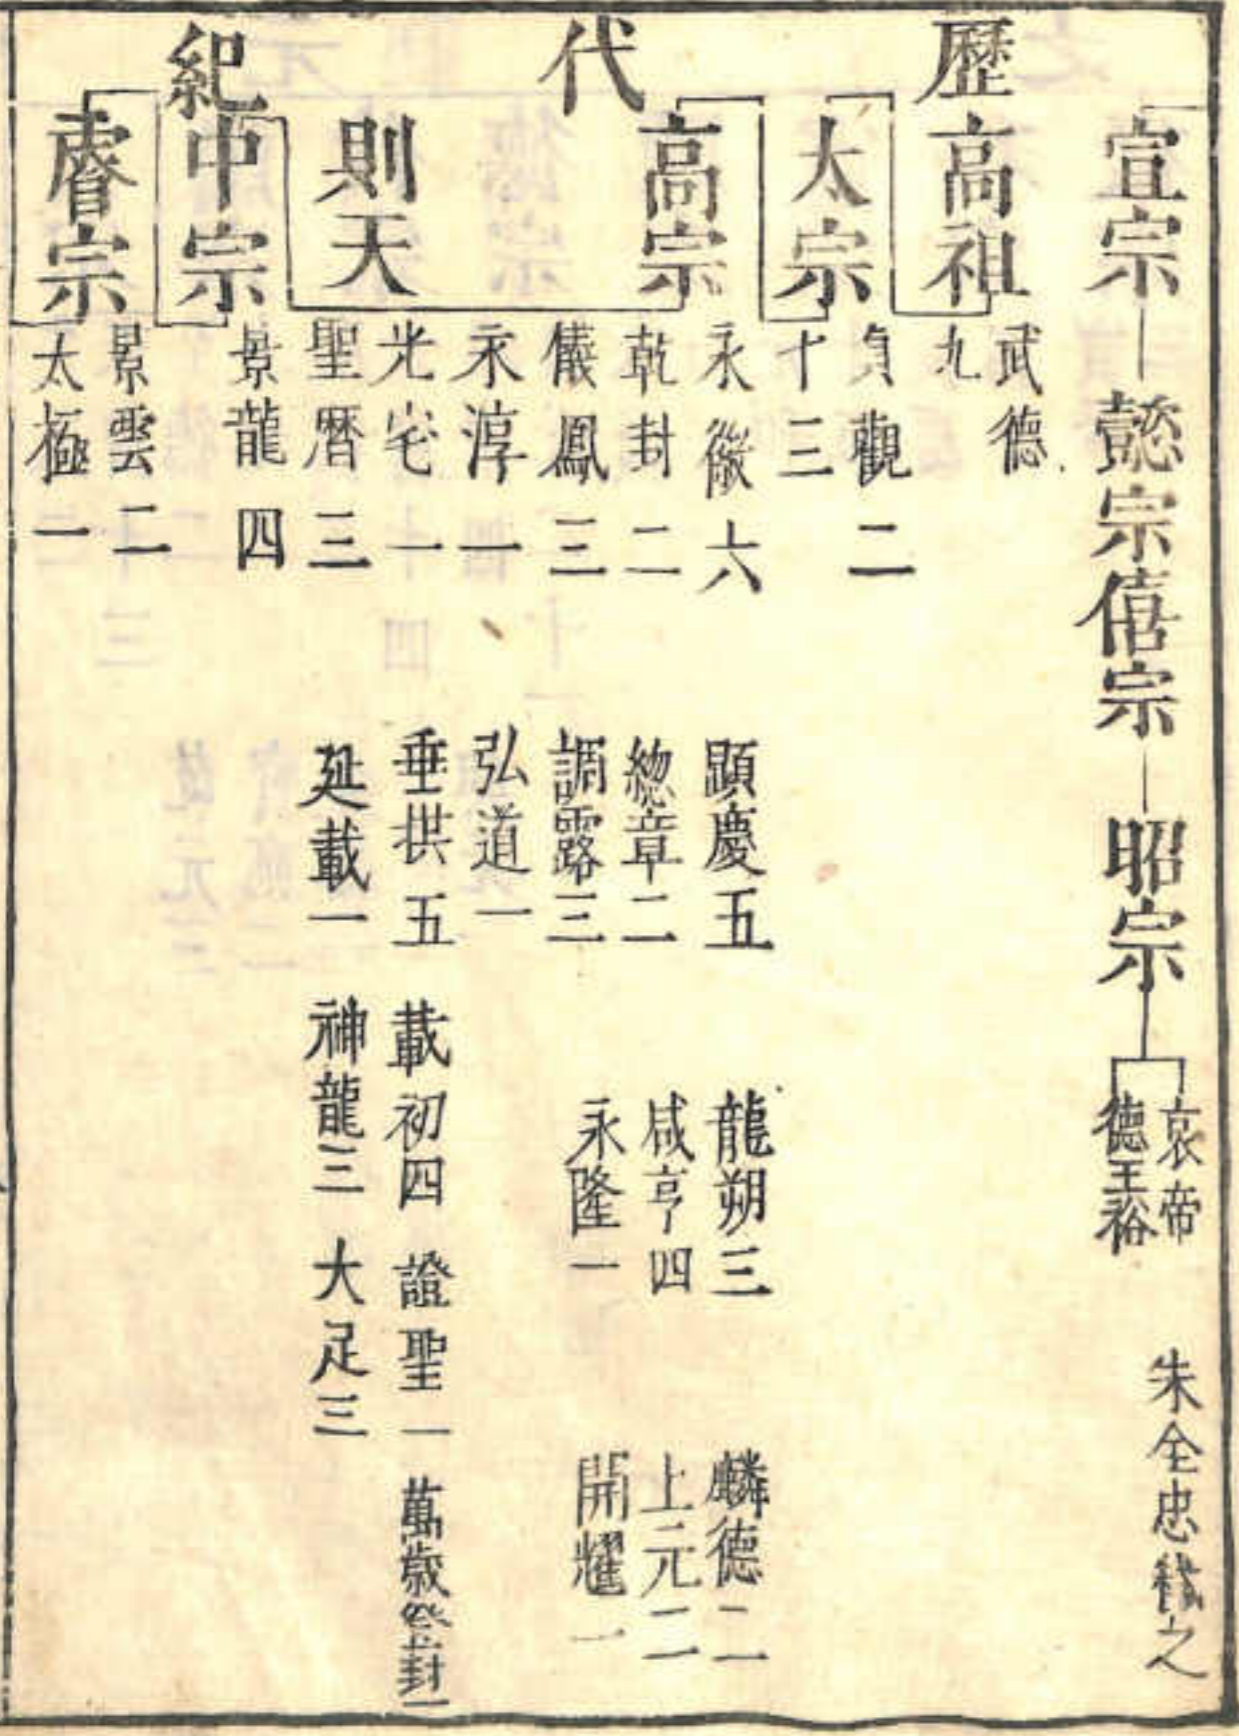 歷代紀
宣宗懿宗僖宗昭宗
哀帝
德王裕
朱全忠
之
高祖
武德
九
太宗
貞觀二
十三
高宗
永徽六 顯慶五 龍朔三 麟德二
乾封二 總章二 咸亨四 上元二
儀鳳三 調露三 永隆一 開耀一
永淳一 弘道一
則天
光宅一 垂拱五 載初四 證聖一 萬歲登封一
聖曆三 延載一 神龍三 大足三
中宗
景龍四
睿宗
景雲二
太極一